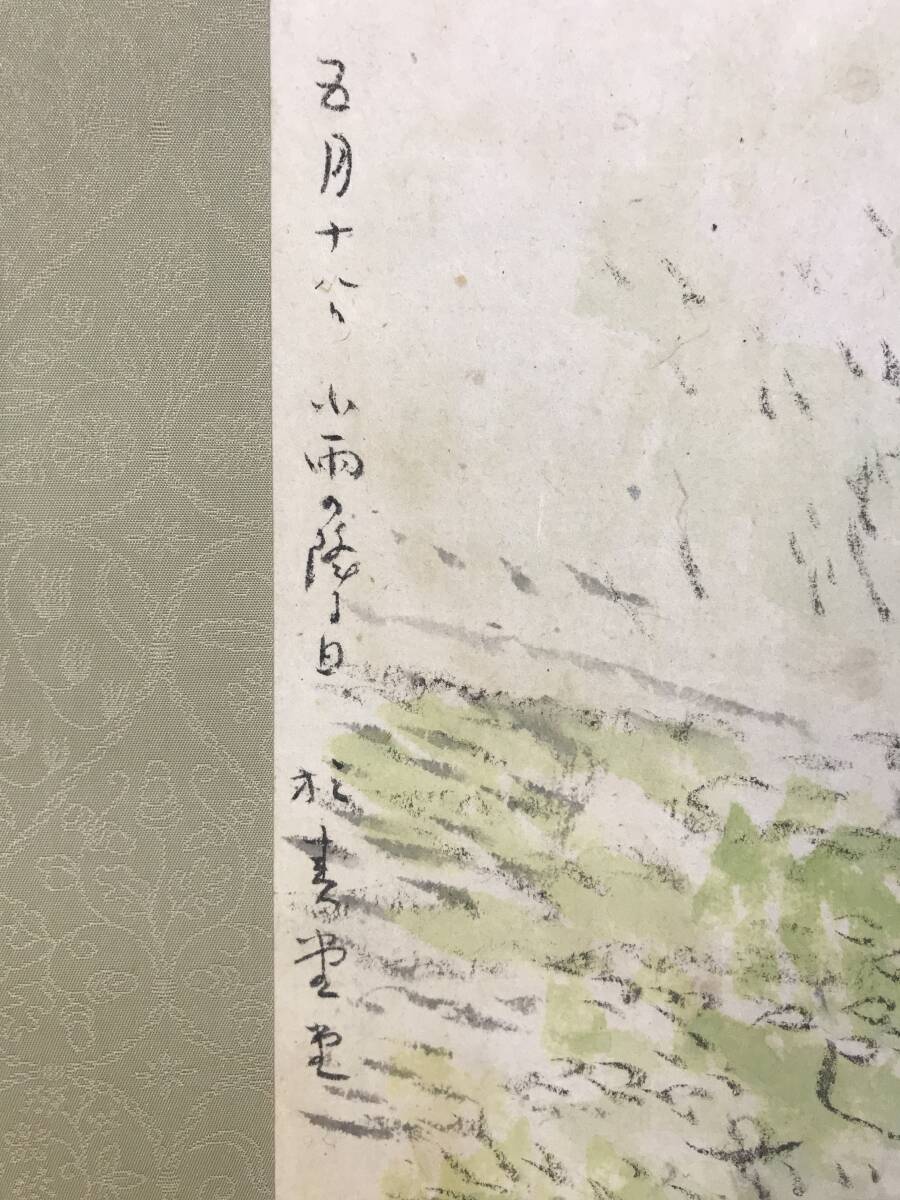 五月十八日 小雨の降る日 於 青堂堂